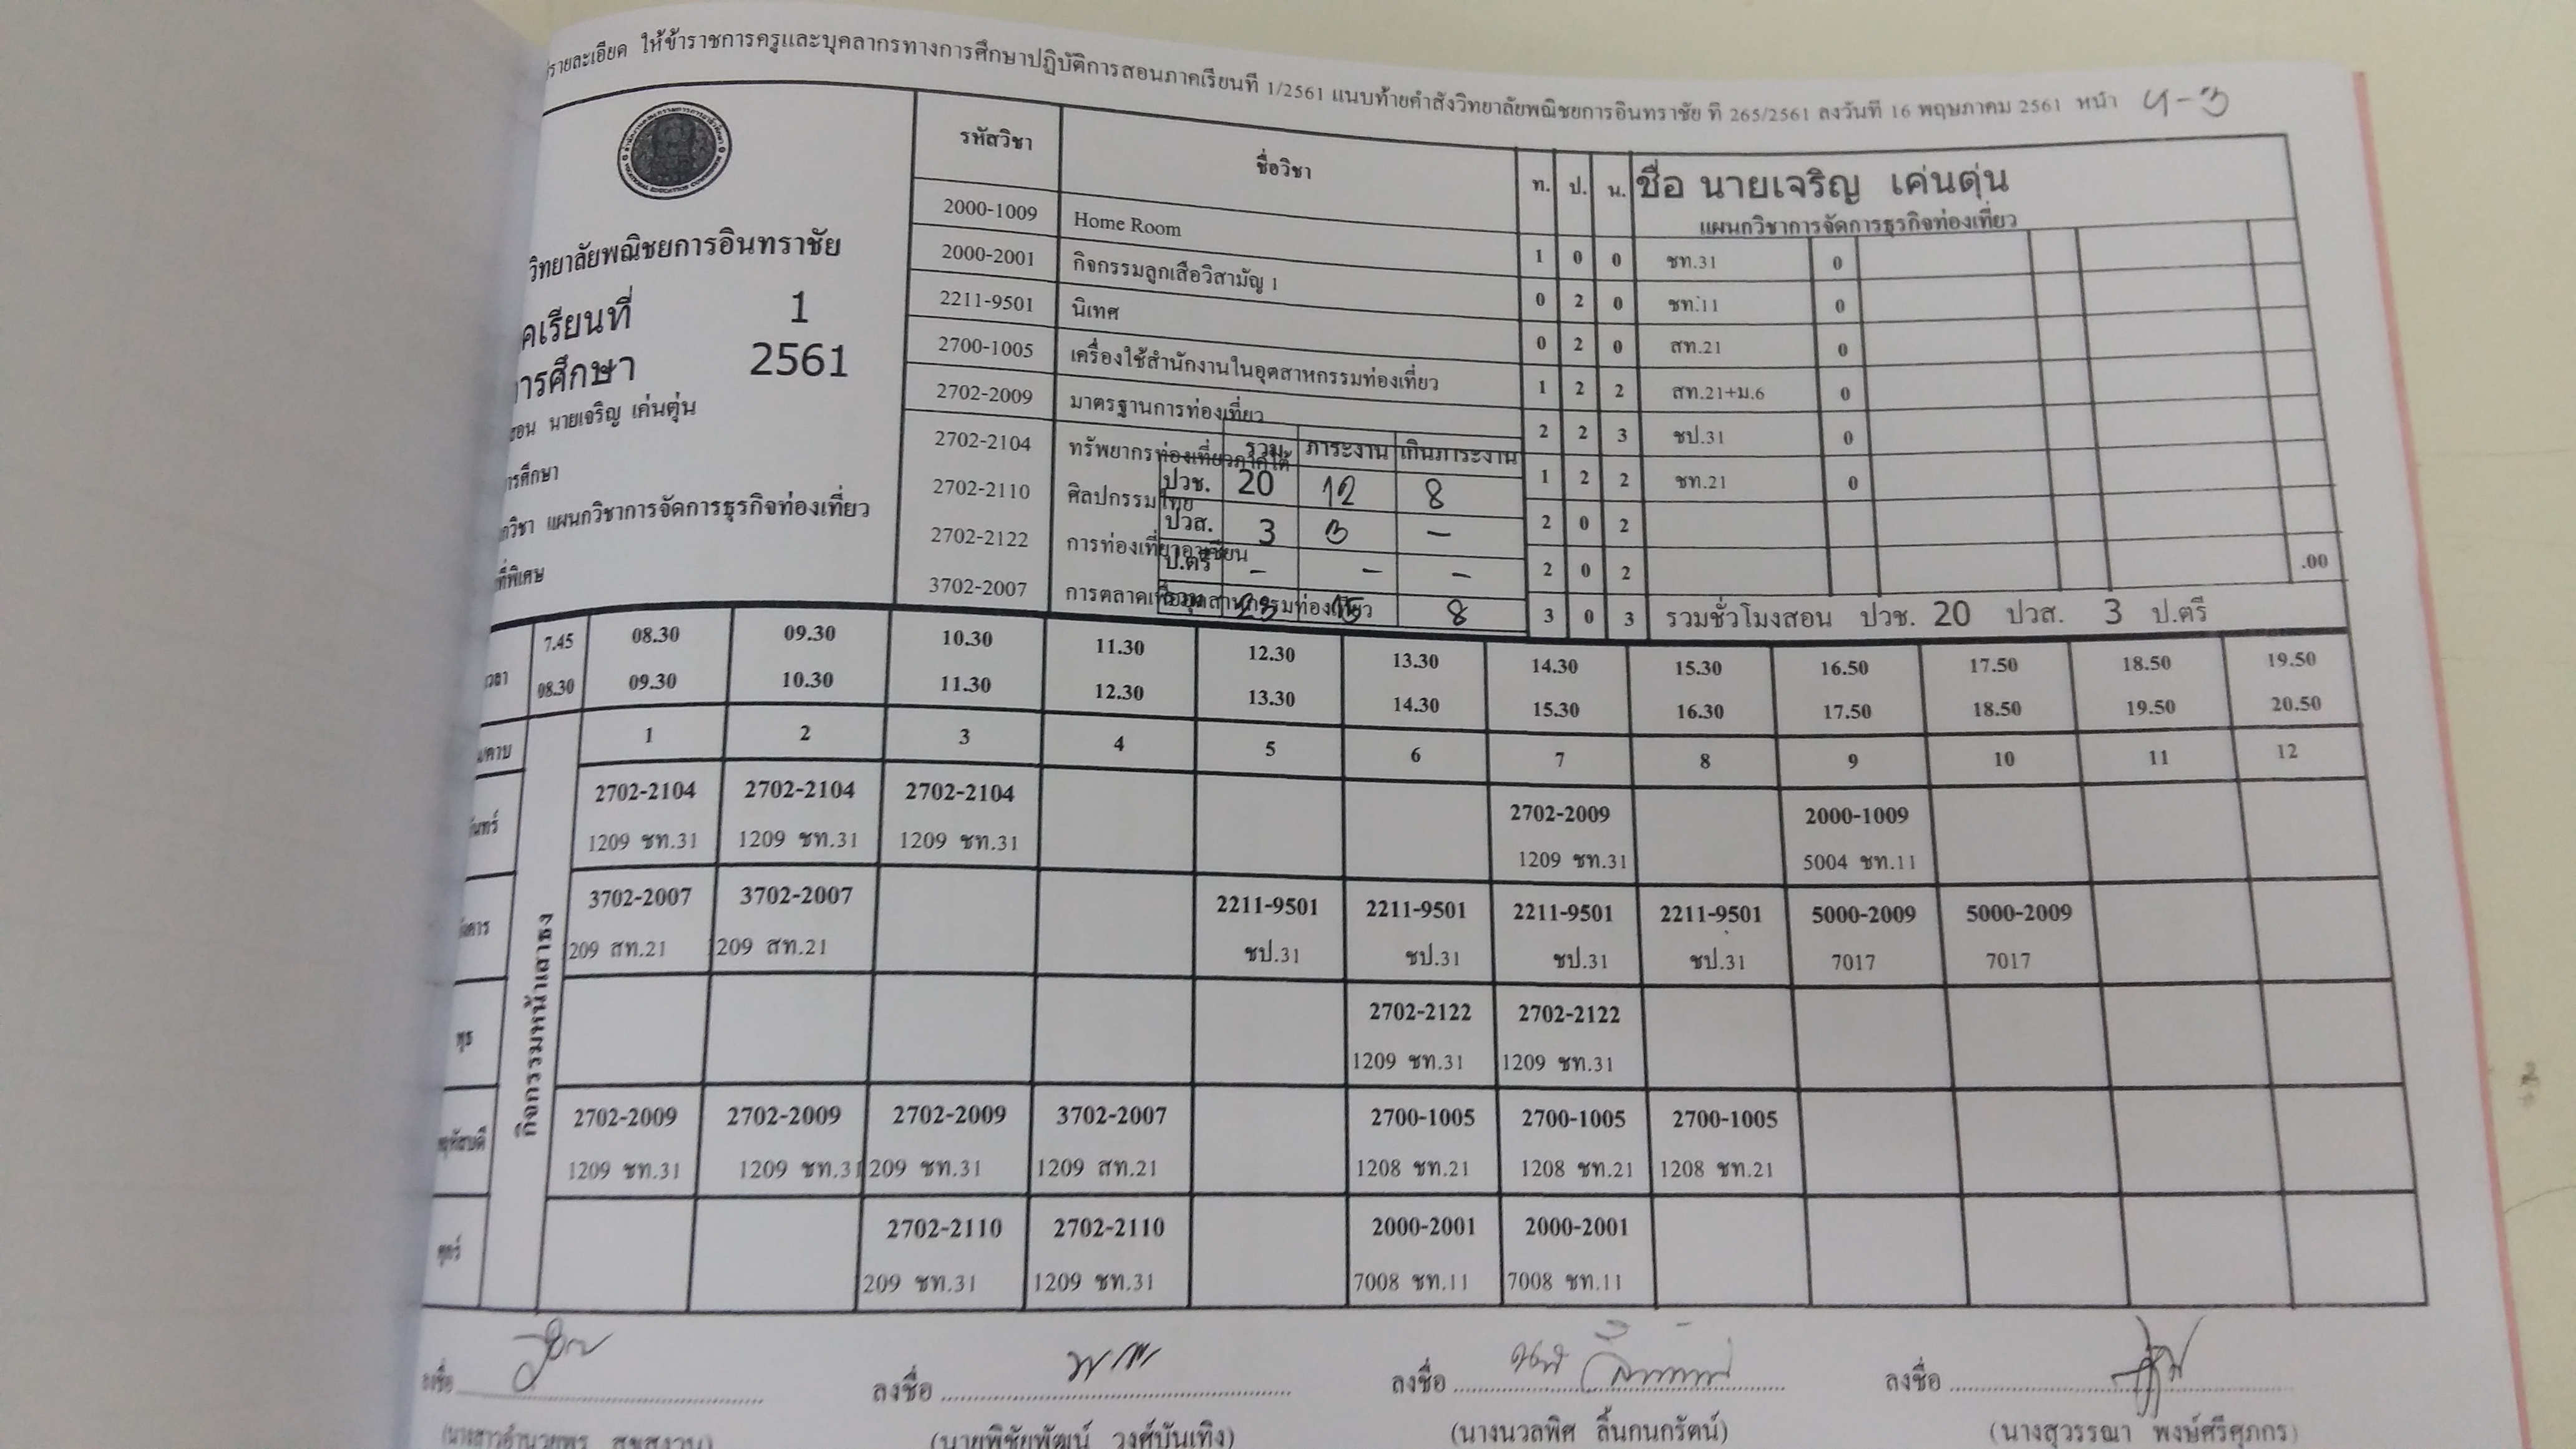 รายละเอียด ให้ข้าราชการครูและบุคลากรทางการศึกษาปฏิบัติการสอนภาคเรียนที่ 1/2561 แนบท้ายคำสั่งวิทยาลัยพณิชยการอินทราชัย ที่ 265/2561 ลงวันที่ 16 พฤษภาคม 2561 หน้า 4-3
วิทยาลัยพณิชยการอินทราชัย
คเรียนที่ 1
การศึกษา 2561
สอน นายเจริญ เค่นตุ่น
การศึกษา
กวิชา แผนกวิชาการจัดการธุรกิจท่องเที่ยว
ที่พิเศษ
รหัสวิชา ชื่อวิชา ท. ป. น. ชื่อ นายเจริญ เค่นตุ่น
แผนกวิชาการจัดการธุรกิจท่องเที่ยว
2000-1009 Home Room 1 0 0 ชท.31 0
2000-2001 กิจกรรมลูกเสือวิสามัญ 1 0 2 0 ชท.11 0
2211-9501 นิเทศ 0 2 0 สท.21 0
2700-1005 เครื่องใช้สำนักงานในอุตสาหกรรมท่องเที่ยว 1 2 2 สท.21+ม.6 0
2702-2009 มาตรฐานการท่องเที่ยว 2 2 3 ชป.31 0
2702-2104 ทรัพยากรท่องเที่ยวภาคใต้ 1 2 2 ชท.21 0
2702-2110 ศิลปกรรมไทย 2 0 2
2702-2122 การท่องเที่ยวอาเซียน 2 0 2 .00
3702-2007 การตลาดเพื่ออุตสาหกรรมท่องเที่ยว 3 0 3 รวมชั่วโมงสอน ปวช. 20 ปวส. 3 ป.ตรี
รวม ภาระงาน เกินภาระงาน
ปวช. 20 12 8
ปวส. 3 3 -
ป.ตรี - - -
รวม 23 15 8
เวลา 7.45 08.30 09.30 10.30 11.30 12.30 13.30 14.30 15.30 16.50 17.50 18.50 19.50
08.30 09.30 10.30 11.30 12.30 13.30 14.30 15.30 16.30 17.50 18.50 19.50 20.50
คาบ 1 2 3 4 5 6 7 8 9 10 11 12
กิจกรรมหน้าเสาธง
จันทร์ 2702-2104 2702-2104 2702-2104 2702-2009 2000-1009
1209 ชท.31 1209 ชท.31 1209 ชท.31 1209 ชท.31 5004 ชท.11
อังคาร 3702-2007 3702-2007 2211-9501 2211-9501 2211-9501 2211-9501 5000-2009 5000-2009
209 สท.21 209 สท.21 ชป.31 ชป.31 ชป.31 ชป.31 7017 7017
พุธ 2702-2122 2702-2122
1209 ชท.31 1209 ชท.31
พฤหัสบดี 2702-2009 2702-2009 2702-2009 3702-2007 2700-1005 2700-1005 2700-1005
1209 ชท.31 1209 ชท.31 209 ชท.31 1209 สท.21 1208 ชท.21 1208 ชท.21 1208 ชท.21
ศุกร์ 2702-2110 2702-2110 2000-2001 2000-2001
209 ชท.31 1209 ชท.31 7008 ชท.11 7008 ชท.11
ลงชื่อ ลงชื่อ ลงชื่อ ลงชื่อ
(นางสาวอำนวยพร สุขสงวน) (นายพิชัยพัฒน์ วงศ์บันเทิง) (นางนวลพิศ ลิ้นกนกรัตน์) (นางสุวรรณา พงษ์ศรีศุภกร)